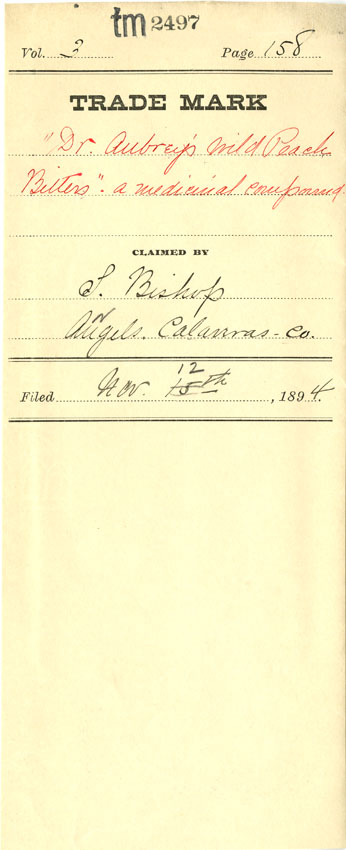 tm 2497
Vol. 3 Page 158
TRADE MARK
"Dr. Aubrey's Wild Peach
Bitters". a medicinal compound
CLAIMED BY
S. Bishop
of
Angels. Calaveras-Co.
12
Filed Nov. 15th, 1894.